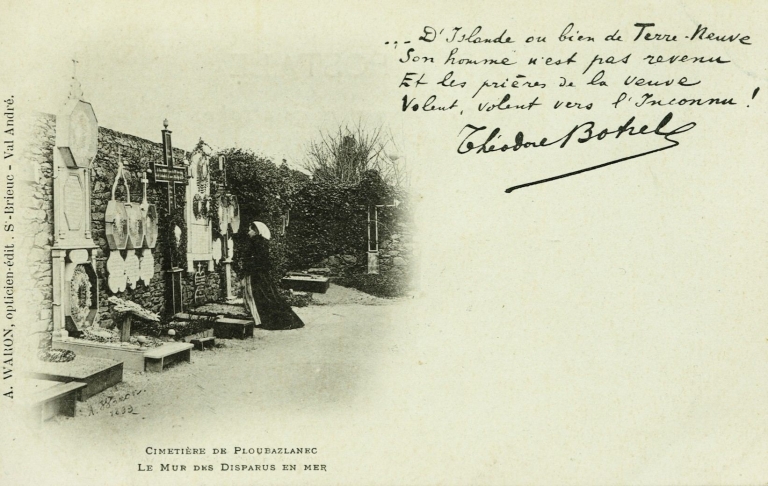 ... D'Islande ou bien de Terre-Neuve
Son homme n'est pas revenu
Et les prières de la veuve
Volent, volent vers l'Inconnu !
Théodore Botrel
A. WARON, opticien-édit. St-Brieuc - Val André.
A. Waron
CIMETIÈRE DE PLOUBAZLANEC
LE MUR DES DISPARUS EN MER